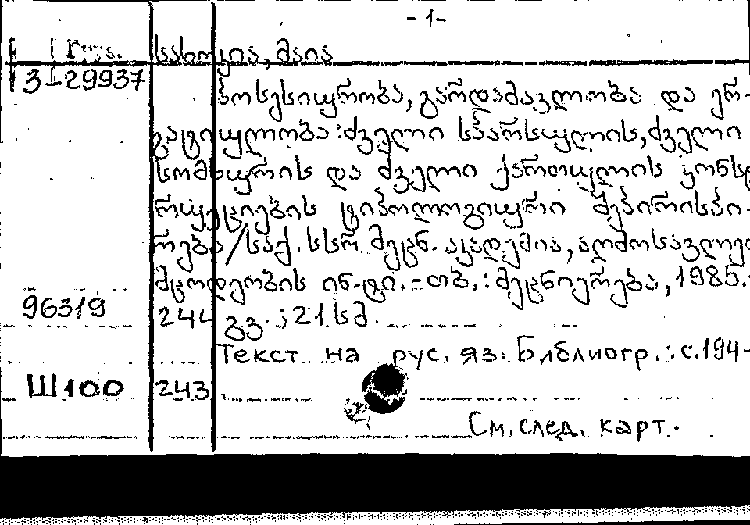 -1-
Груз. სახოკია, მაია
3-29937
პოსესიურობა, გარდამავლობა და ერ-
გატიულობა: ძველი სპარსულის, ძველი
სომხურის და ძველი ქართული კონსტ
რუქციების ტიპოლოგიური შეპირისპი-
რება/საქ. სსრ მეცნ. აკადემია, აღმოსავლეთ
მცოდნეობის ინ-ტი.-თბ.: მეცნიერება, 1985.-
963/9 244 გვ.; 21 სმ.
Текст на рус. яз. Библиогр.: с. 194-
Ш100 243
См. след. карт.-